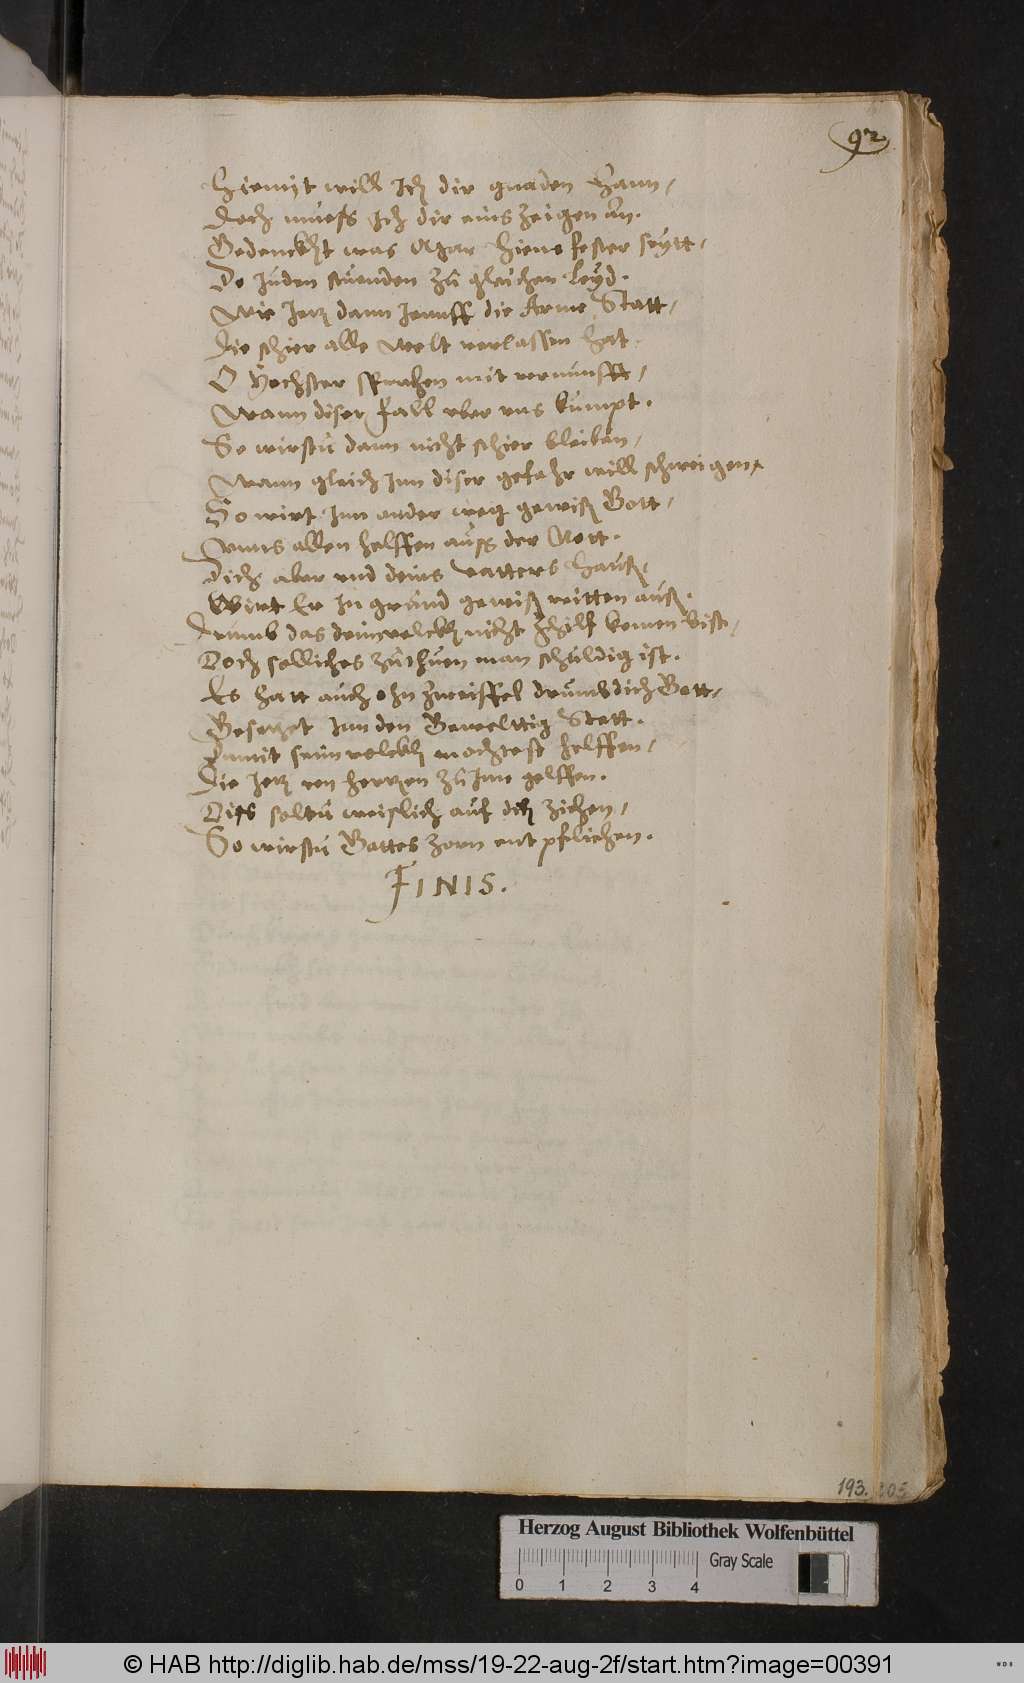 92
Hiemit will Ich dir gnaden Hann,
Doch muess Ich dir eins zeigen an.
Gedenckht was Hiene fester seytt,
Do Juden stuenden zu gleichen Leyd.
Wie Jetz dann die Arme Statt,
Die schier alle Welt verlassen hat.
O Hochster sprachen mit vernunfft,
Wann diser fall vber vns kumpt.
So wirstu dann nicht schier bleiben,
Wann gleich Inn diser gefahr will schweigen,
So wirt Inn ander weg gewiß Gott,
Vnns allen helffen auss der Nott.
Dich aber vnd deins vatters Hauß,
Wirt Er In grund gewiß reitten auß.
Drumb das deim volckh nicht Zhilf komen bist,
Doch solliches zuthuen man schuldig ist.
Es hatt auch ohn zweiffel drumb dich Gott,
Gesetzt Inn den Statt.
Damit seim volckh mochtest helffen,
Die Jetz von hertzen zu Ime gelffen.
Diss soltu weislich auf dich ziehen,
So wirstu Gottes zorn entpfliehen.
FINIS.
193. 205
Herzog August Bibliothek Wolfenbüttel
Gray Scale
0 1 2 3 4
© HAB http://diglib.hab.de/mss/19-22-aug-2f/start.htm?image=00391